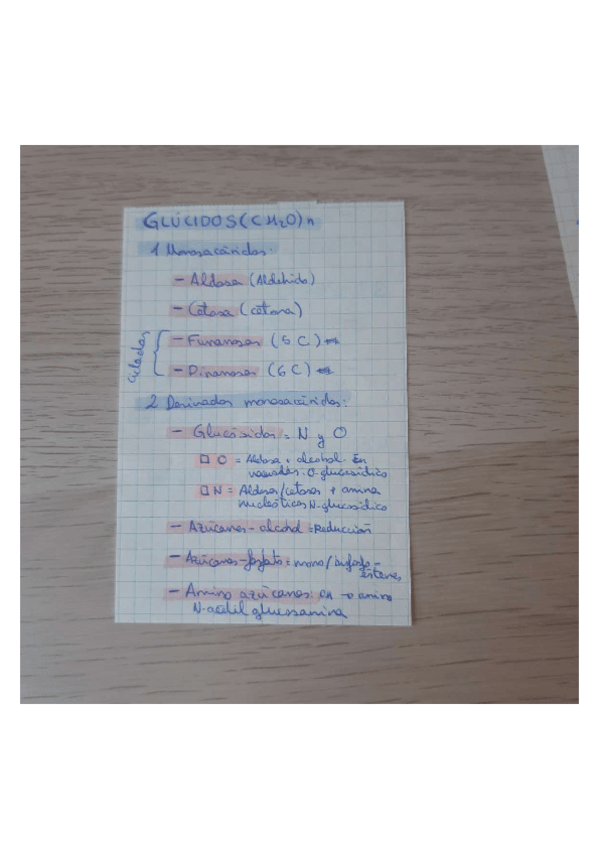 GLÚCIDOS (CH₂O)n
1 Monosacáridos.
- Aldosa (Aldehido)
- Cetosa (cetona)
Ciclados
- Furanosas (5 C)
- Piranosas (6 C)
2 Derivados monosacáridos:
- Glucósidos = N y O
O = Aldosa + alcohol. En
O-glucosídico
N = Aldosa/cetosas + amina
N-glucosídico
- Azúcares-alcohol = Reducción
- Azúcares-fosfato = mono/bifosfo-
ésteres
- Amino azúcares: OH → amino
N-acetil glucosamina